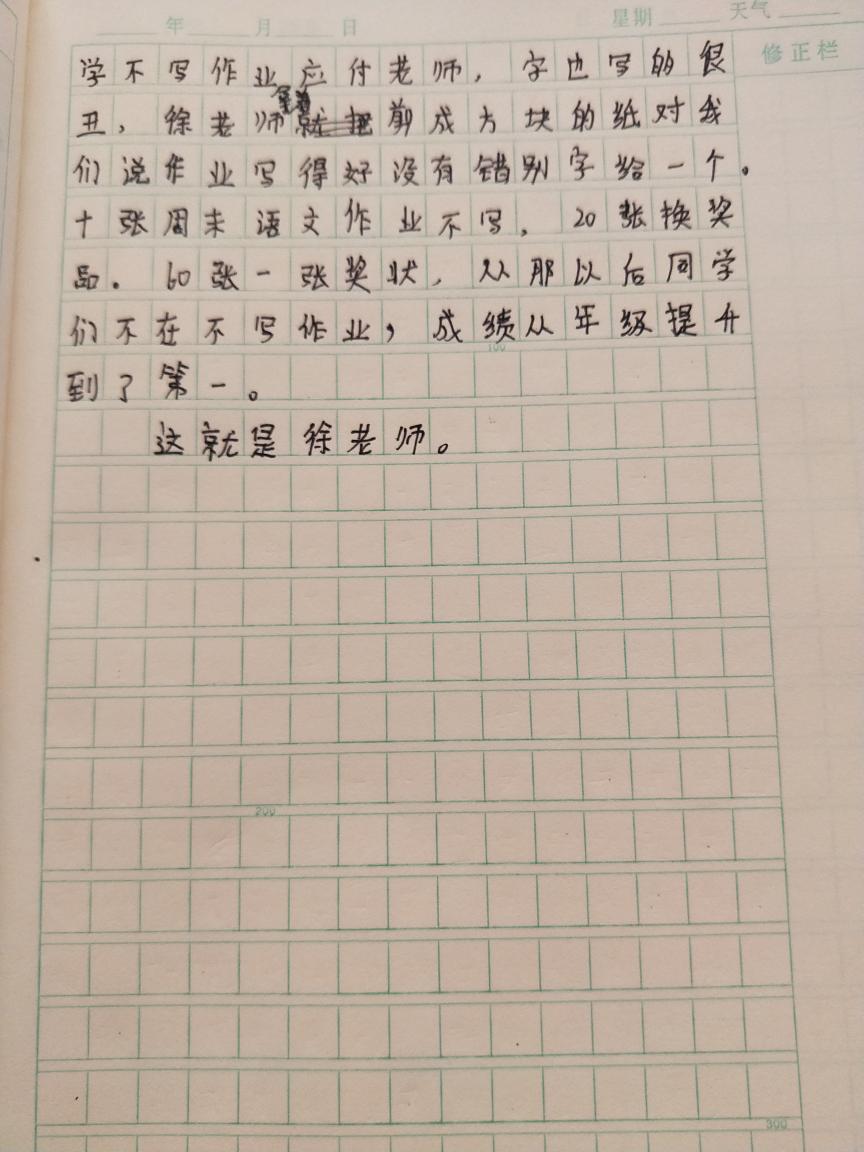 年 月 日 星期 天气
修正栏
学不写作业应付老师，字也写的很
丑，徐老师拿着剪成方块的纸对我
们说作业写得好没有错别字给一个。
十张周末语文作业不写，20张换奖
品．60张一张奖状，从那以后同学
们不在不写作业，成绩从年级提升
100
到了第一。
这就是徐老师。
200
300